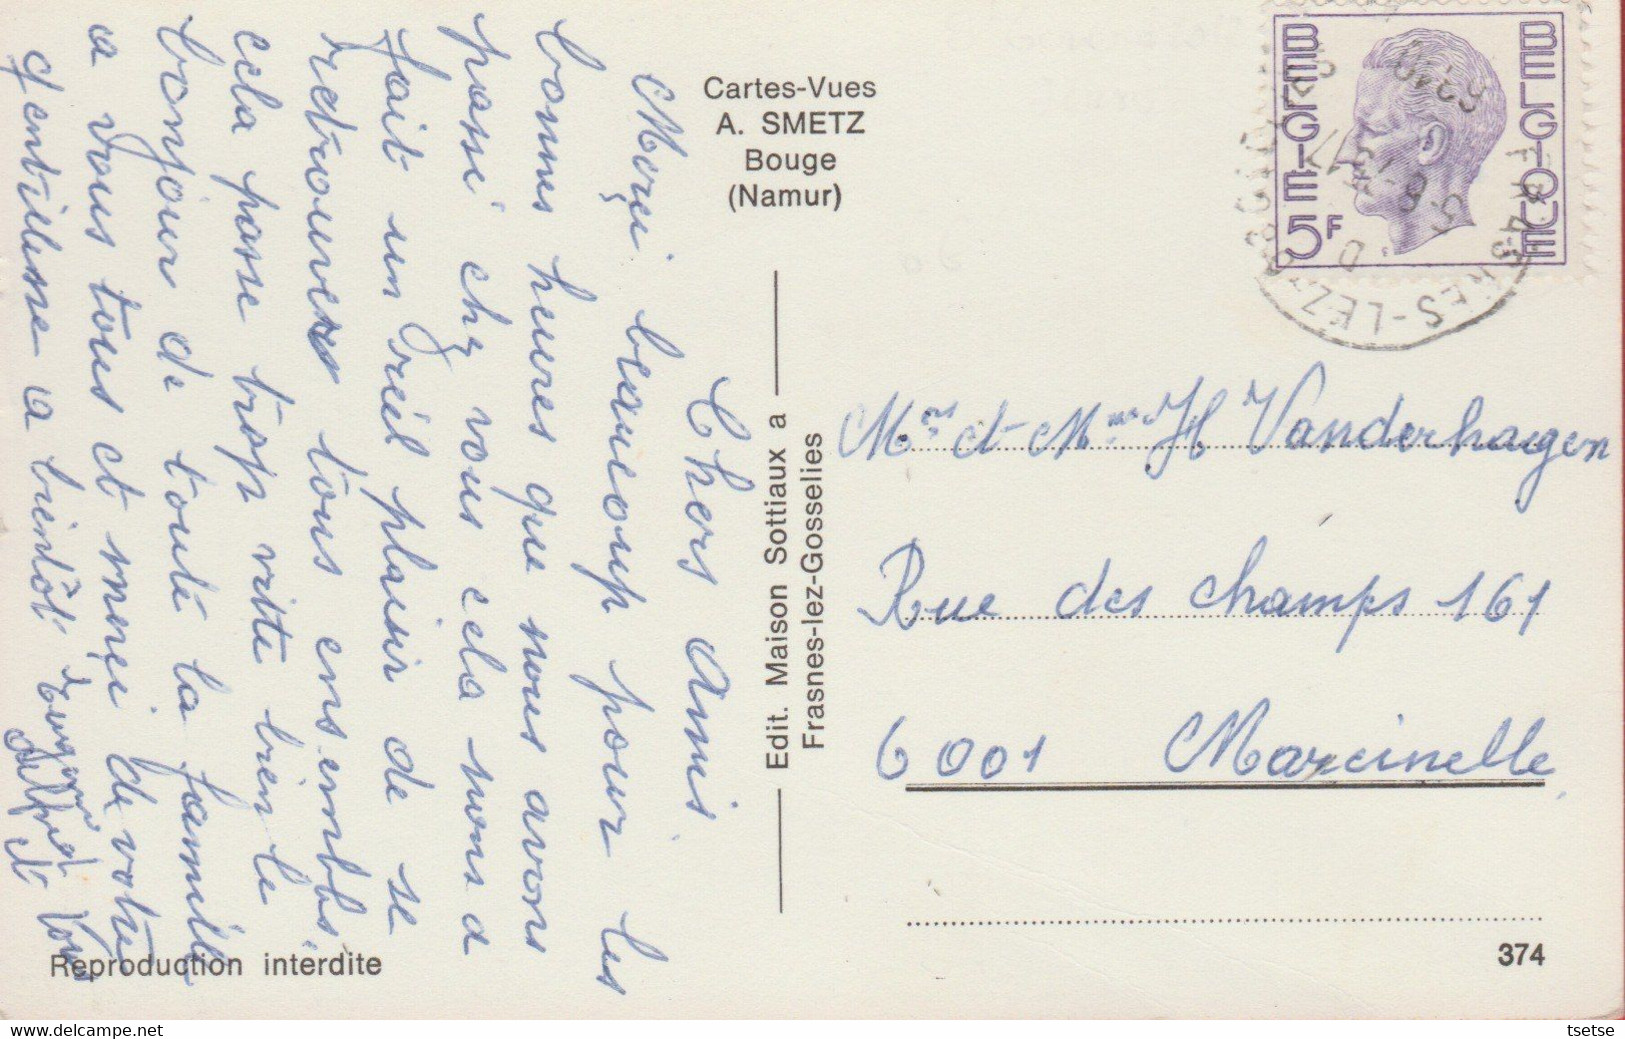 Cartes-Vues
A. SMETZ
Bouge
(Namur)
BELGIE
BELGIQUE
5F
FRASNES-LEZ-
6240
Chers Amis
Merçi beaucoup pour les
bonnes heures que nous avons
passé chez vous cela nous a
fait un réel plaisir de se
retrouver tous ensemble,
cela passe trop vite bien le
bonjour de toute la famille
a vous tous et merçi de votre
gentillesse a bientôt
Alfred et
Edit. Maison Sottiaux a
Frasnes-lez-Gosselies
Mr et Mme H Vanderhaegen
Rue des champs 161
6001 Marcinelle
Reproduction interdite
374
delcampe.net
tsetse